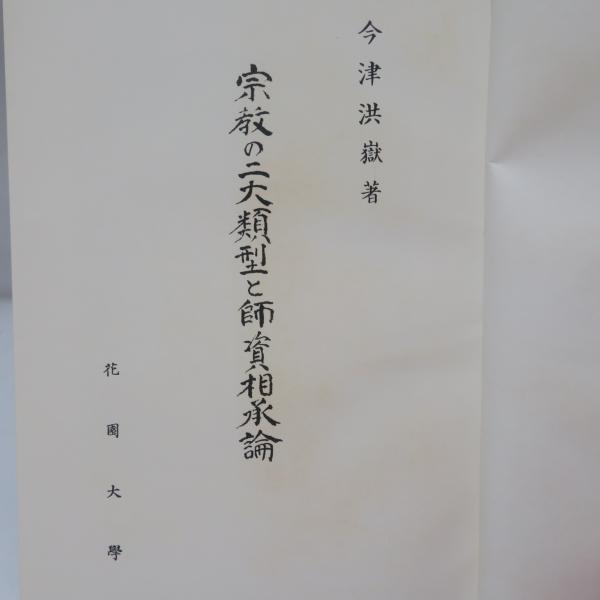 今津洪嶽著
宗教の二大類型と師資相承論
花園大學